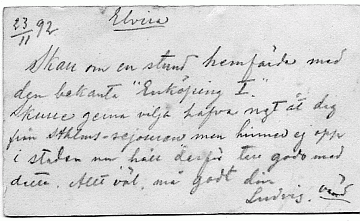 23/11 92
Elvira
Skall om en stund hemfärda med
den bekanta "Enköping I."
Skulle gerna velat hafva ngt åt dig
från Sthlms-sejouren men hinner ej opp
i staden nu håll derför till godo med
detta. Allt väl, må godt din
Ludvig. vänd